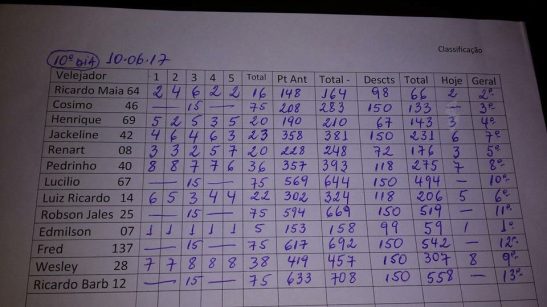 Classificação
10º dia 10-06-17
Velejador 1 2 3 4 5 Total Pt Ant Total - Descts Total Hoje Geral
Ricardo Maia 64 2 4 6 2 2 16 148 164 98 66 2 2º
Cosimo 46 — 15 — 75 208 283 150 133 — 3º
Henrique 69 5 2 5 3 5 20 190 210 67 143 3 4º
Jackeline 42 4 6 4 6 3 23 358 381 150 231 6 7º
Renart 08 3 3 2 5 7 20 228 248 72 176 3 5º
Pedrinho 40 8 8 7 7 6 36 357 393 118 275 7 8º
Lucilio 67 — 15 — 75 569 644 150 494 — 10º
Luiz Ricardo 14 6 5 3 4 4 22 302 324 118 206 5 6º
Robson Jales 25 — 15 — 75 594 669 150 519 — 11º
Edmilson 07 1 1 1 1 1 5 153 158 99 59 1 1º
Fred 137 — 15 — 75 617 692 150 542 — 12º
Wesley 28 7 7 8 8 8 38 419 457 150 307 8 9º
Ricardo Barb 12 — 15 — 75 633 708 150 558 — 13º